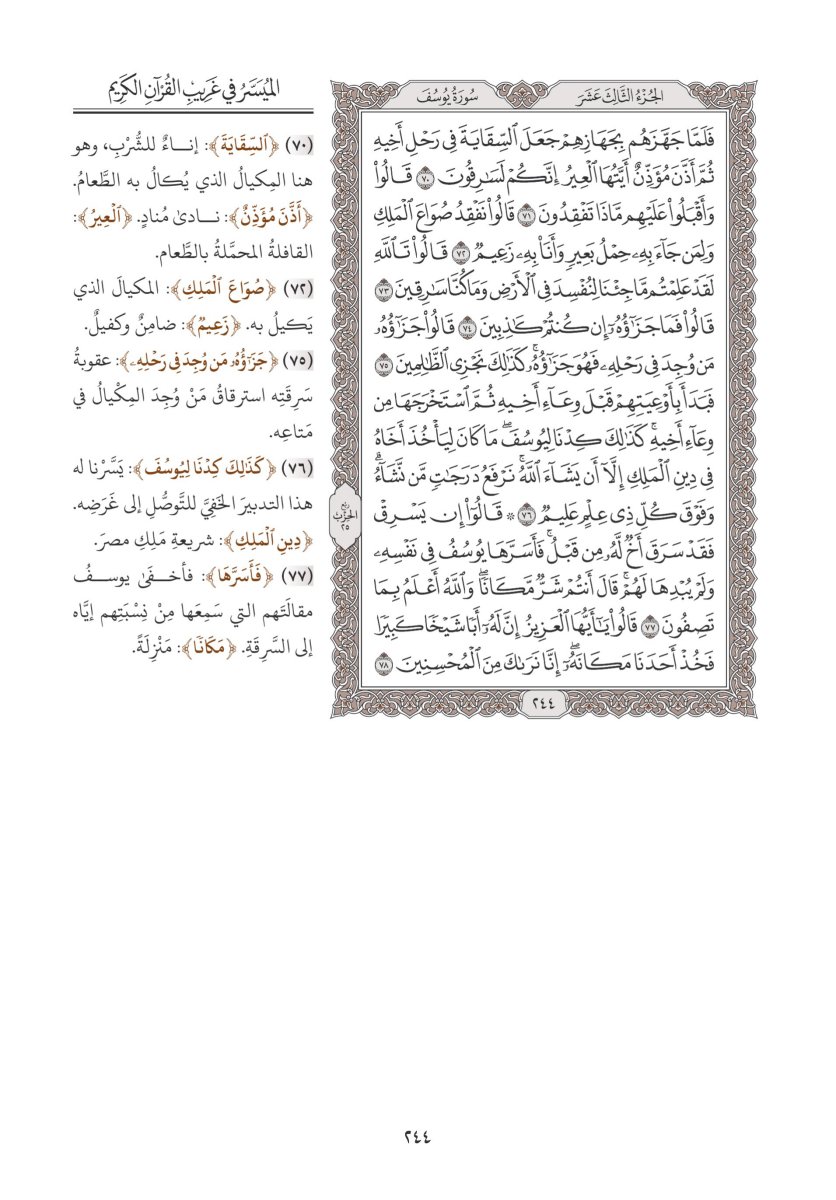 الجُزْءُ الثَّالِثَ عَشَرَ
سُورَةُ يُوسُفَ
فَلَمَّا جَهَّزَهُم بِجَهَازِهِمْ جَعَلَ ٱلسِّقَايَةَ فِى رَحْلِ أَخِيهِ
ثُمَّ أَذَّنَ مُؤَذِّنٌ أَيَّتُهَا ٱلْعِيرُ إِنَّكُمْ لَسَٰرِقُونَ ٧٠ قَالُوا۟
وَأَقْبَلُوا۟ عَلَيْهِم مَّاذَا تَفْقِدُونَ ٧١ قَالُوا۟ نَفْقِدُ صُوَاعَ ٱلْمَلِكِ
وَلِمَن جَآءَ بِهِۦ حِمْلُ بَعِيرٍ وَأَنَا۠ بِهِۦ زَعِيمٌ ٧٢ قَالُوا۟ تَٱللَّهِ
لَقَدْ عَلِمْتُم مَّا جِئْنَا لِنُفْسِدَ فِى ٱلْأَرْضِ وَمَا كُنَّا سَٰرِقِينَ ٧٣
قَالُوا۟ فَمَا جَزَٰٓؤُهُۥٓ إِن كُنتُمْ كَٰذِبِينَ ٧٤ قَالُوا۟ جَزَٰٓؤُهُۥ
مَن وُجِدَ فِى رَحْلِهِۦ فَهُوَ جَزَٰٓؤُهُۥ ۚ كَذَٰلِكَ نَجْزِى ٱلظَّٰلِمِينَ ٧٥
فَبَدَأَ بِأَوْعِيَتِهِمْ قَبْلَ وِعَآءِ أَخِيهِ ثُمَّ ٱسْتَخْرَجَهَا مِن
وِعَآءِ أَخِيهِ ۚ كَذَٰلِكَ كِدْنَا لِيُوسُفَ ۖ مَا كَانَ لِيَأْخُذَ أَخَاهُ
فِى دِينِ ٱلْمَلِكِ إِلَّآ أَن يَشَآءَ ٱللَّهُ ۚ نَرْفَعُ دَرَجَٰتٍ مَّن نَّشَآءُ ۗ
وَفَوْقَ كُلِّ ذِى عِلْمٍ عَلِيمٌ ٧٦ ۞ قَالُوٓا۟ إِن يَسْرِقْ
فَقَدْ سَرَقَ أَخٌ لَّهُۥ مِن قَبْلُ ۚ فَأَسَرَّهَا يُوسُفُ فِى نَفْسِهِۦ
وَلَمْ يُبْدِهَا لَهُمْ ۚ قَالَ أَنتُمْ شَرٌّ مَّكَانًا ۖ وَٱللَّهُ أَعْلَمُ بِمَا
تَصِفُونَ ٧٧ قَالُوا۟ يَٰٓأَيُّهَا ٱلْعَزِيزُ إِنَّ لَهُۥٓ أَبًا شَيْخًا كَبِيرًا
فَخُذْ أَحَدَنَا مَكَانَهُۥٓ ۖ إِنَّا نَرَىٰكَ مِنَ ٱلْمُحْسِنِينَ ٧٨
ربع
الحزب
٢٥
٢٤٤
المُيَسَّرُ في غَرِيبِ القُرْآنِ الكَرِيمِ
(٧٠) ﴿ٱلسِّقَايَةَ﴾: إنـاءٌ للشُّرْبِ، وهو
هنا المِكيالُ الذي يُكالُ به الطَّعامُ.
﴿أَذَّنَ مُؤَذِّنٌ﴾: نـادىٰ مُنادٍ. ﴿ٱلْعِيرُ﴾:
القافلةُ المحمَّلةُ بالطَّعام.
(٧٢) ﴿صُوَاعَ ٱلْمَلِكِ﴾: المكيالَ الذي
يَكيلُ به. ﴿زَعِيمٌ﴾: ضامِنٌ وكفيلٌ.
(٧٥) ﴿جَزَٰٓؤُهُۥ مَن وُجِدَ فِى رَحْلِهِۦ﴾: عقوبةُ
سَرِقَتِه استرقاقُ مَنْ وُجِدَ المِكْيالُ في
مَتاعِه.
(٧٦) ﴿كَذَٰلِكَ كِدْنَا لِيُوسُفَ﴾: يَسَّرْنا له
هذا التدبيرَ الخَفِيَّ للتَّوصُّلِ إلى غَرَضِه.
﴿دِينِ ٱلْمَلِكِ﴾: شريعةِ مَلِكِ مصرَ.
(٧٧) ﴿فَأَسَرَّهَا﴾: فأخـفَىٰ يوسـفُ
مقالَتَهم التي سَمِعَها مِنْ نِسْبَتِهم إيَّاه
إلى السَّرِقَةِ. ﴿مَكَانًا﴾: مَنْزِلَةً.
٢٤٤